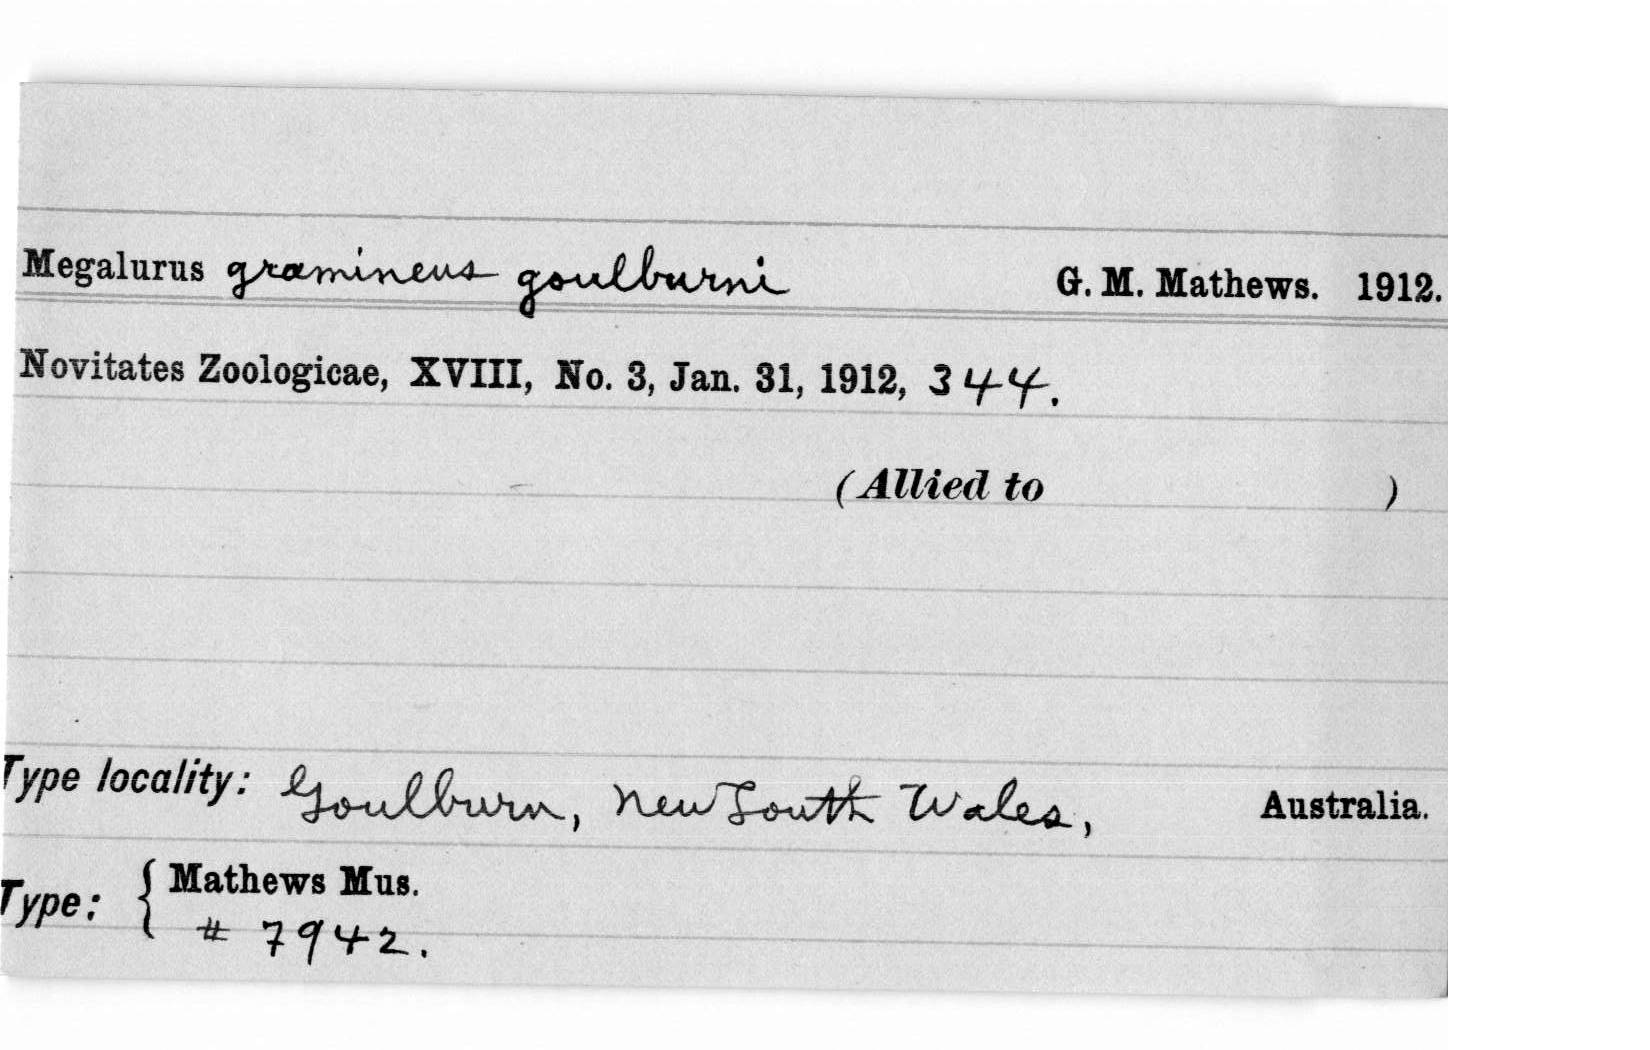 Megalurus gramineus goulburni G. M. Mathews. 1912.
Novitates Zoologicae, XVIII, No. 3, Jan. 31, 1912, 344.
(Allied to )
Type locality: Goulburn, New South Wales, Australia.
Type: { Mathews Mus.
# 7942.